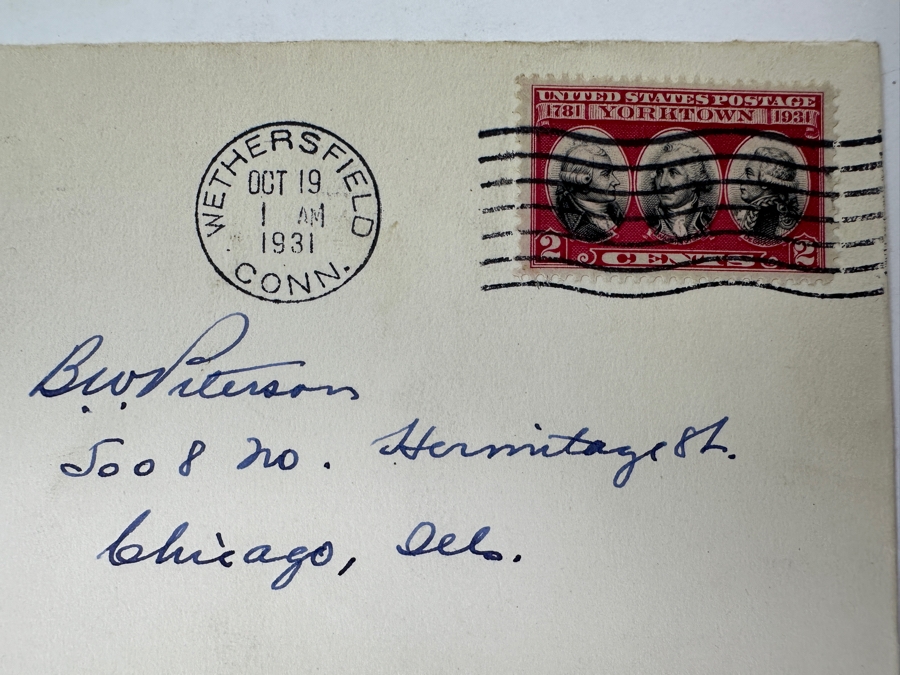 WETHERSFIELD
OCT 19
1 AM
1931
CONN.
UNITED STATES POSTAGE
1781 YORKTOWN 1931
2 CENTS 2
B.W. Peterson
5008 No. Hermitage St.
Chicago, Ills.